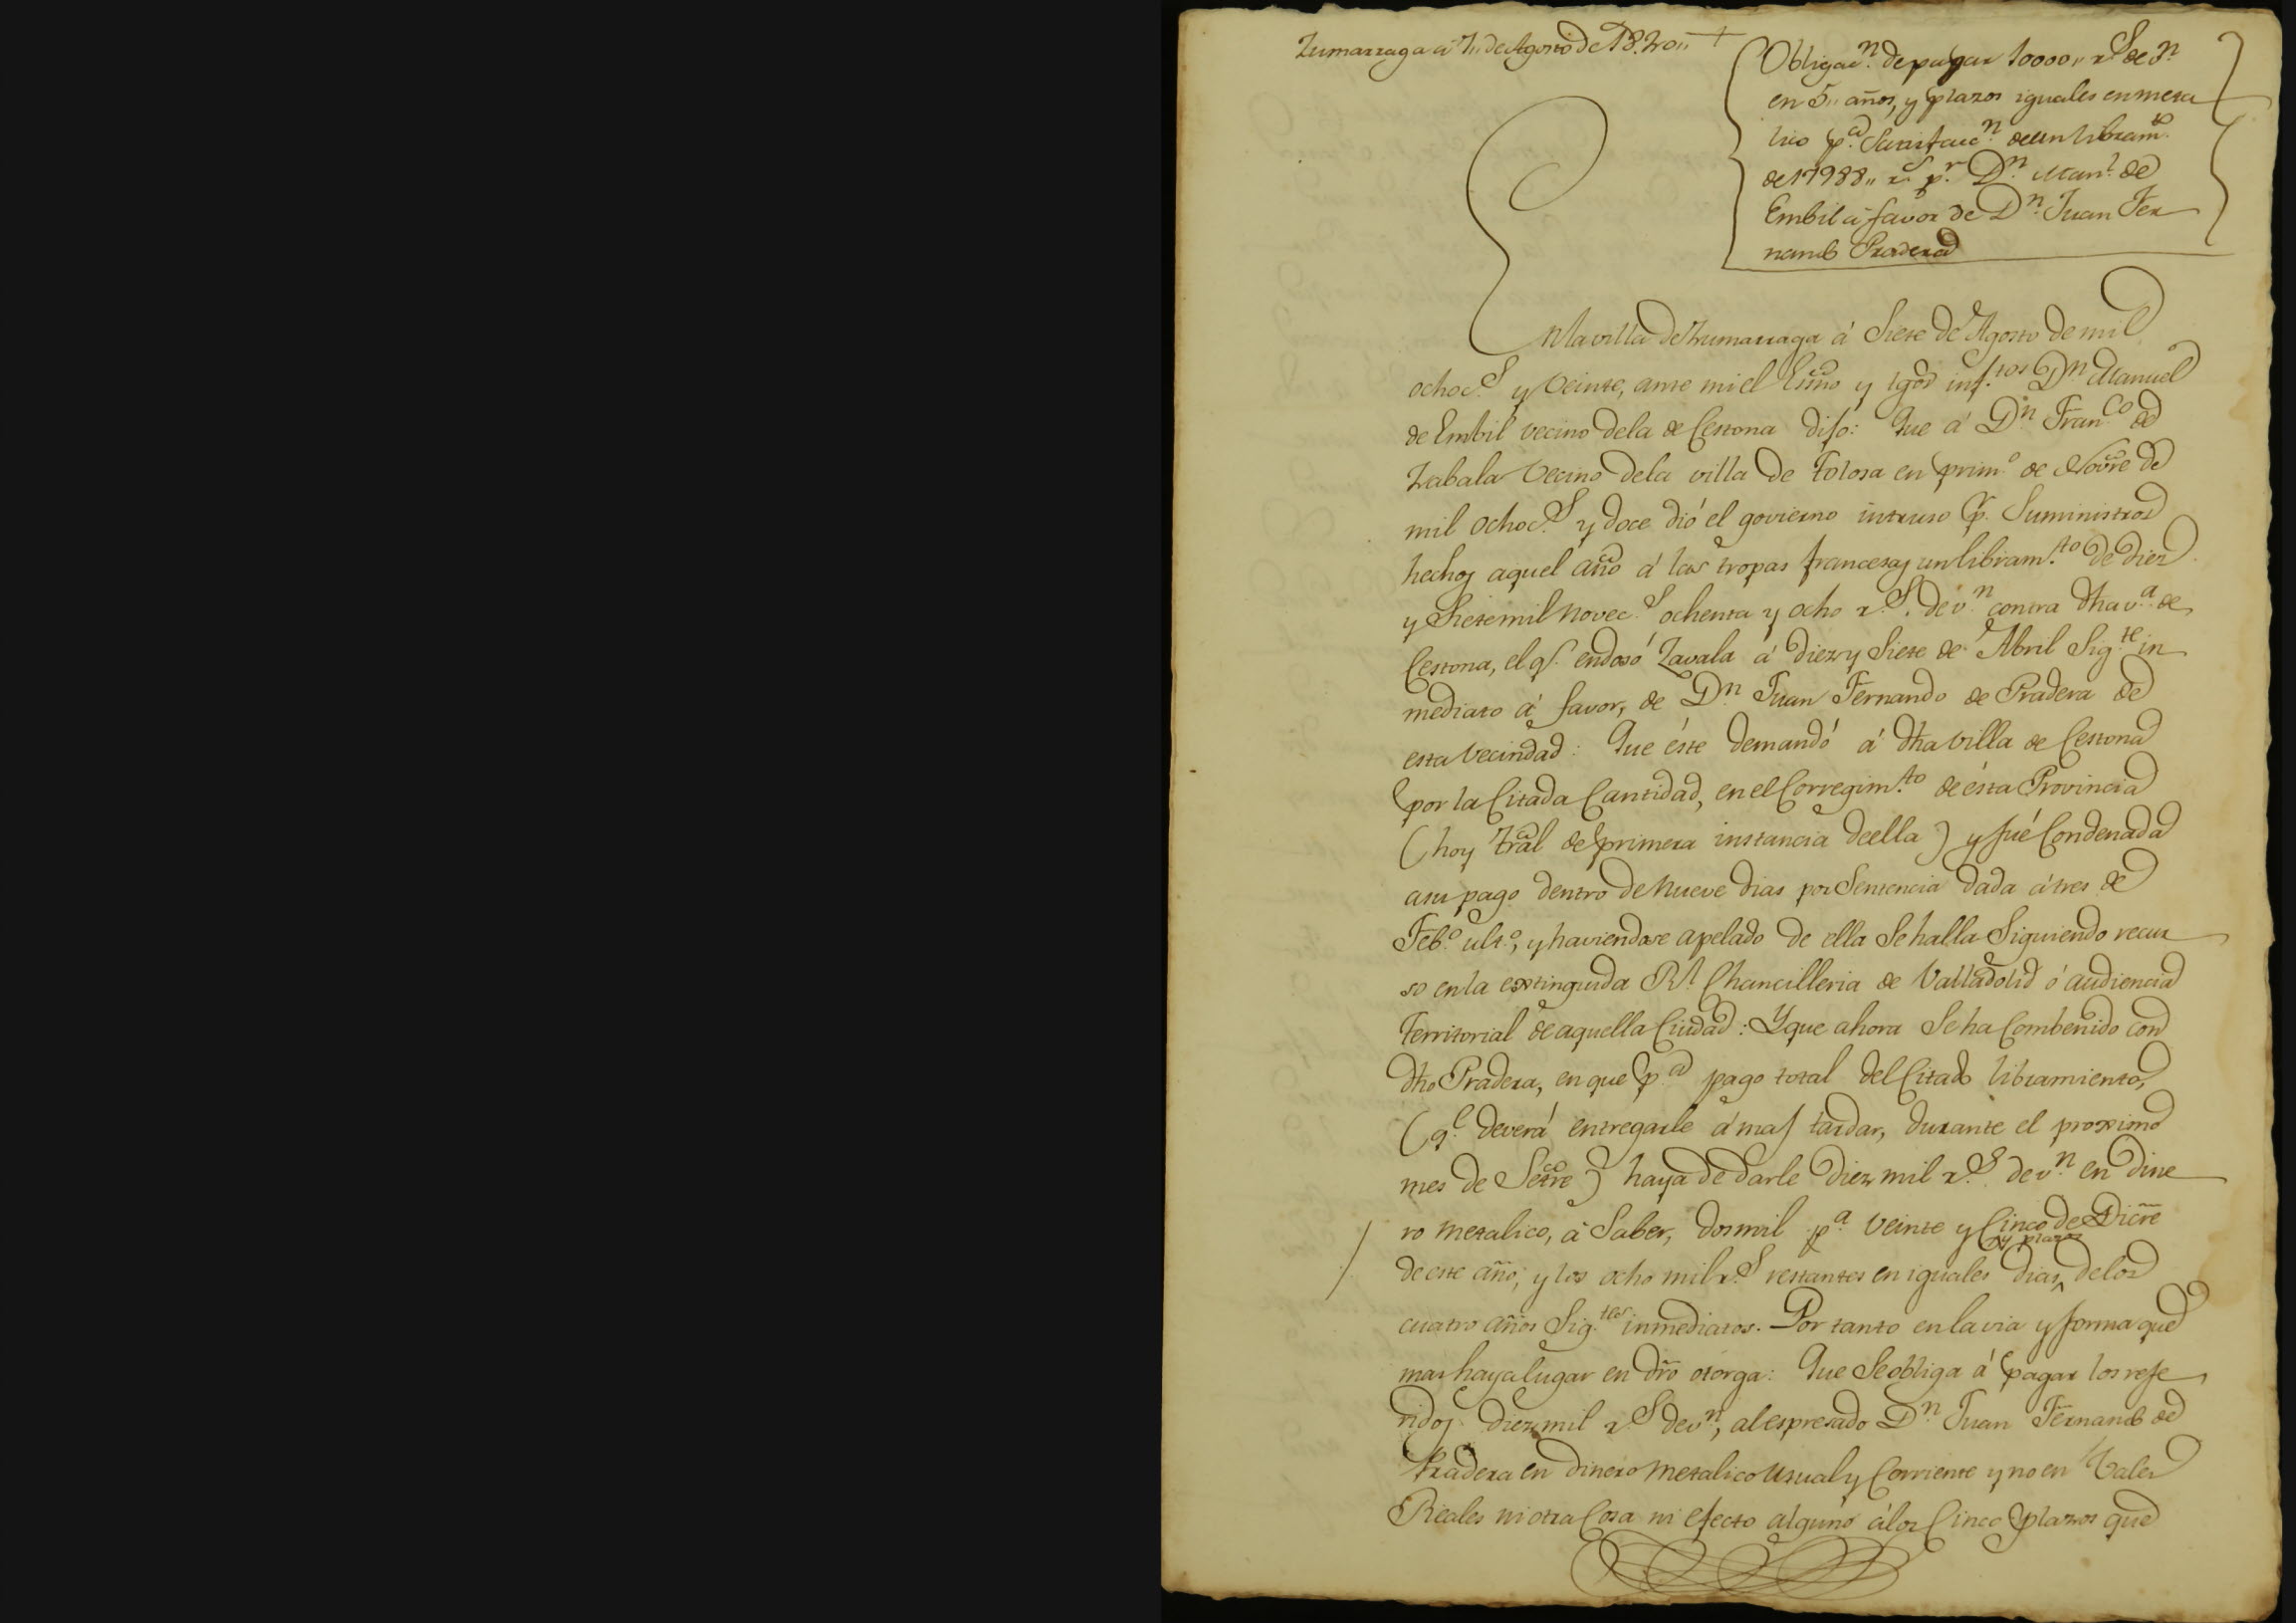 Zumarraga á 7,, de Agosto de 1820,,
Obligac.n de pagar 10000,, r.s de v.n
en 5,, años, y plazos iguales en meta
lico p.a Satisfacc.n de un libram.to
de 17988,, r.s p.r D.n Man.l de
Embil á favor de D.n Juan Fer
nando Pradera
En la villa de Zumarraga á Siete de Agosto de mil
ochoc.s y Veinte, ante mi el Esño y tgos inf.tos D.n Manuel
de Embil vecino dela de Cestona dijo: Que á D.n Fran.co de
Zabala Vecino dela villa de Tolosa en prim.o de Novre de
mil ochoc.s y doce dió el govierno intruso p.r Suministros
hechos aquel año á las tropas francesas un libram.to de diez
y Siete mil novec.s ochenta y ocho r.s de v.n contra dha v.a de
Cestona, el q.e endosó Zavala á diez y Siete de Abril Sig.te in
mediato á favor, de D.n Juan Fernando de Pradera de
esta Vecindad: Que éste demandó á dha Villa de Cestona
por la Citada Cantidad, en el Corregim.to de ésta Provincia
(hoy Tral de primera instancia de ella) y fué Condenada
a su pago dentro de Nueve dias por Sentencia dada á tres de
Feb.o ult.o, y haviendose apelado de ella Se halla Siguiendo recur
so en la extinguida R.l Chancilleria de Valladolid ó audiencia
Territorial de aquella Ciudad: Y que ahora Se ha Combenido con
dho Pradera, en que p.a pago total del Citado libramiento,
(q.e deverá entregarle á mas tardar, durante el proximo
mes de Setre) haya de darle diez mil r.s de v.n en dine
ro metalico, á Saber, dos mil p.a Veinte y Cinco de Dicre
de este año; y los ocho mil r.s restantes en iguales dias y plazos de los
cuatro años Sig.tes inmediatos. Por tanto en la via y forma que
mas haya lugar en dro otorga: Que Se obliga á pagar los refe
ridos diez mil r.s de v.n, al espresado D.n Juan Fernando de
Pradera en dinero Metalico Usual y Corriente y no en Vales
Reales ni otra Cosa ni efecto alguno á los Cinco plazos que